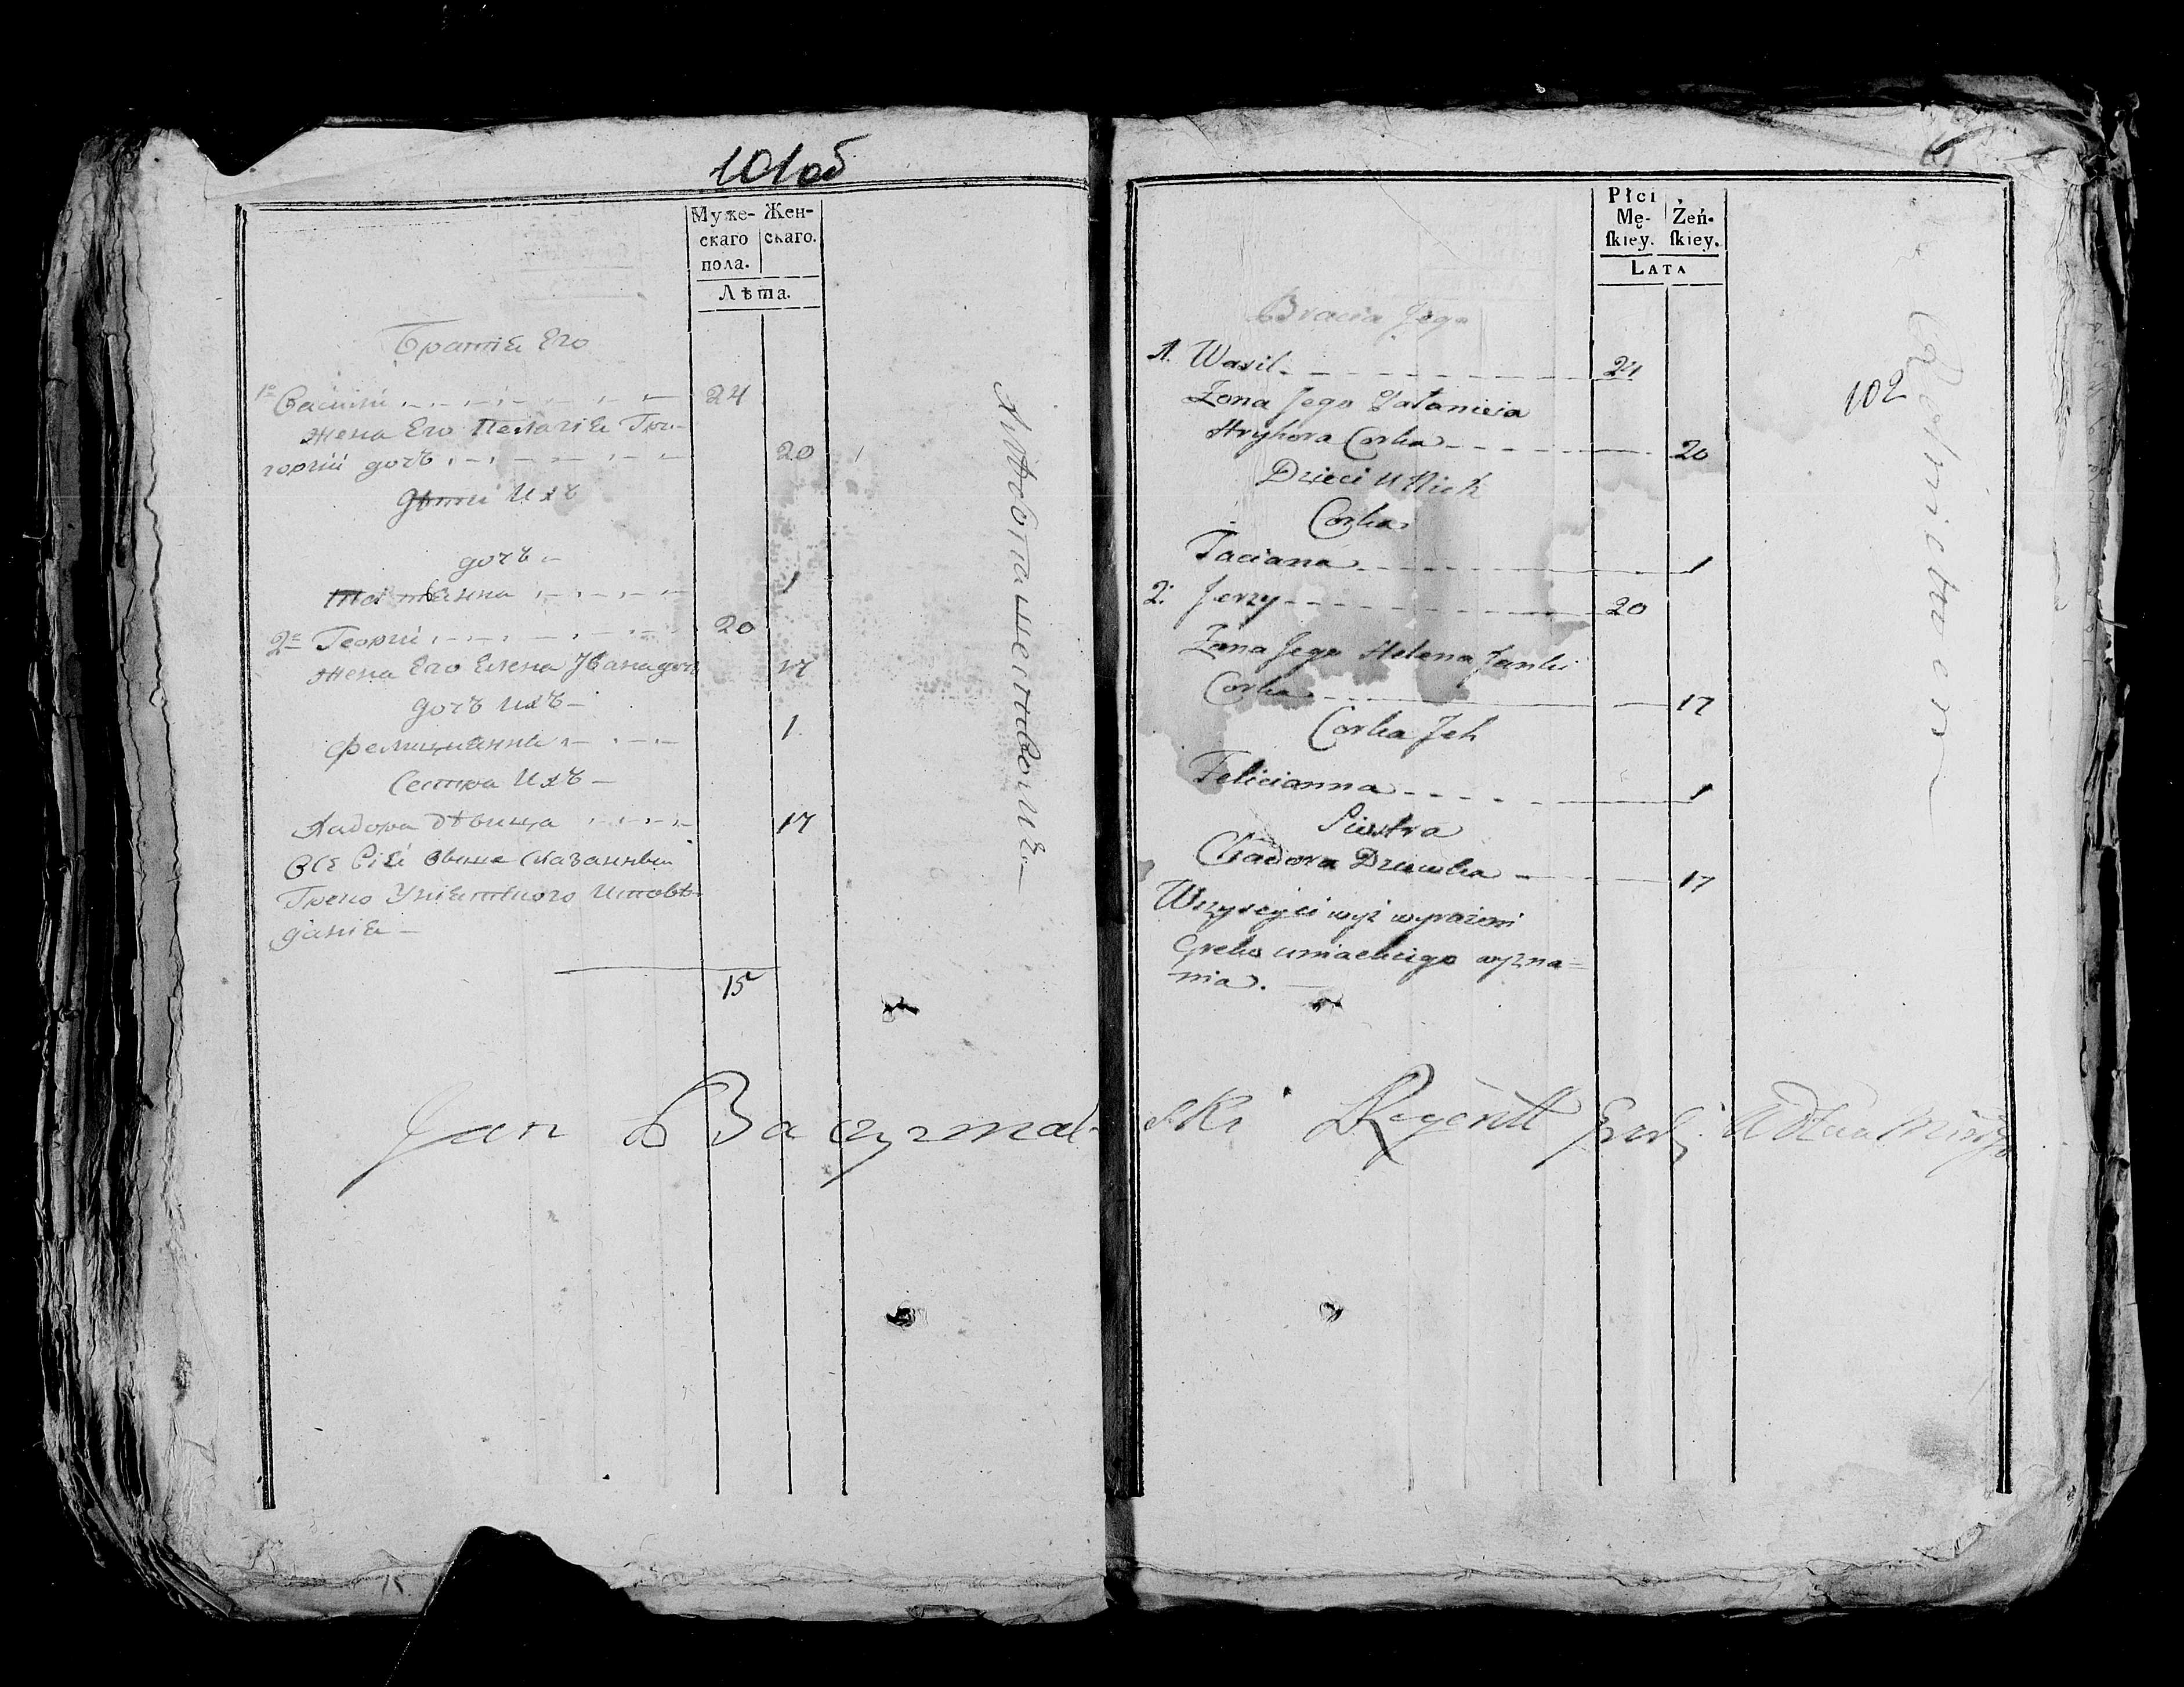 101об
Муже- Жен-
скаго скаго.
пола.
Лѣта.
Братія Его
1е Василій 24
жена Его Пелагія Гри-
горій дочь 20
дѣтей Ихъ
дочь
Татіанна 1
2е Георгій 20
жена Его Елена Ивана дочь 17
дочь Ихъ
Фелиціанна 1
Сестра Ихъ
Хадора дѣвица 17
Всѣ Сіи свыше сказанныи
Греко Уніятского Исповѣ-
данія
15
Płci
Mę- Żeń-
skiey. skiey.
Lata
102
Bracia Jego
1. Wasil 24
Żona Jego
Hryhora Corka 20
Dzieci u Nich
Corka
Taciana 1
2. Jerzy 20
Żona Jego Helena Janki
Corka 17
Corka Jch
Felicianna 1
Siostra
Chadora Dziewka 17
Wszyscy ci wyż wyrażeni
Greko uniackiego wyzna=
nia.
Jan Baczyżmal-
ski Regent